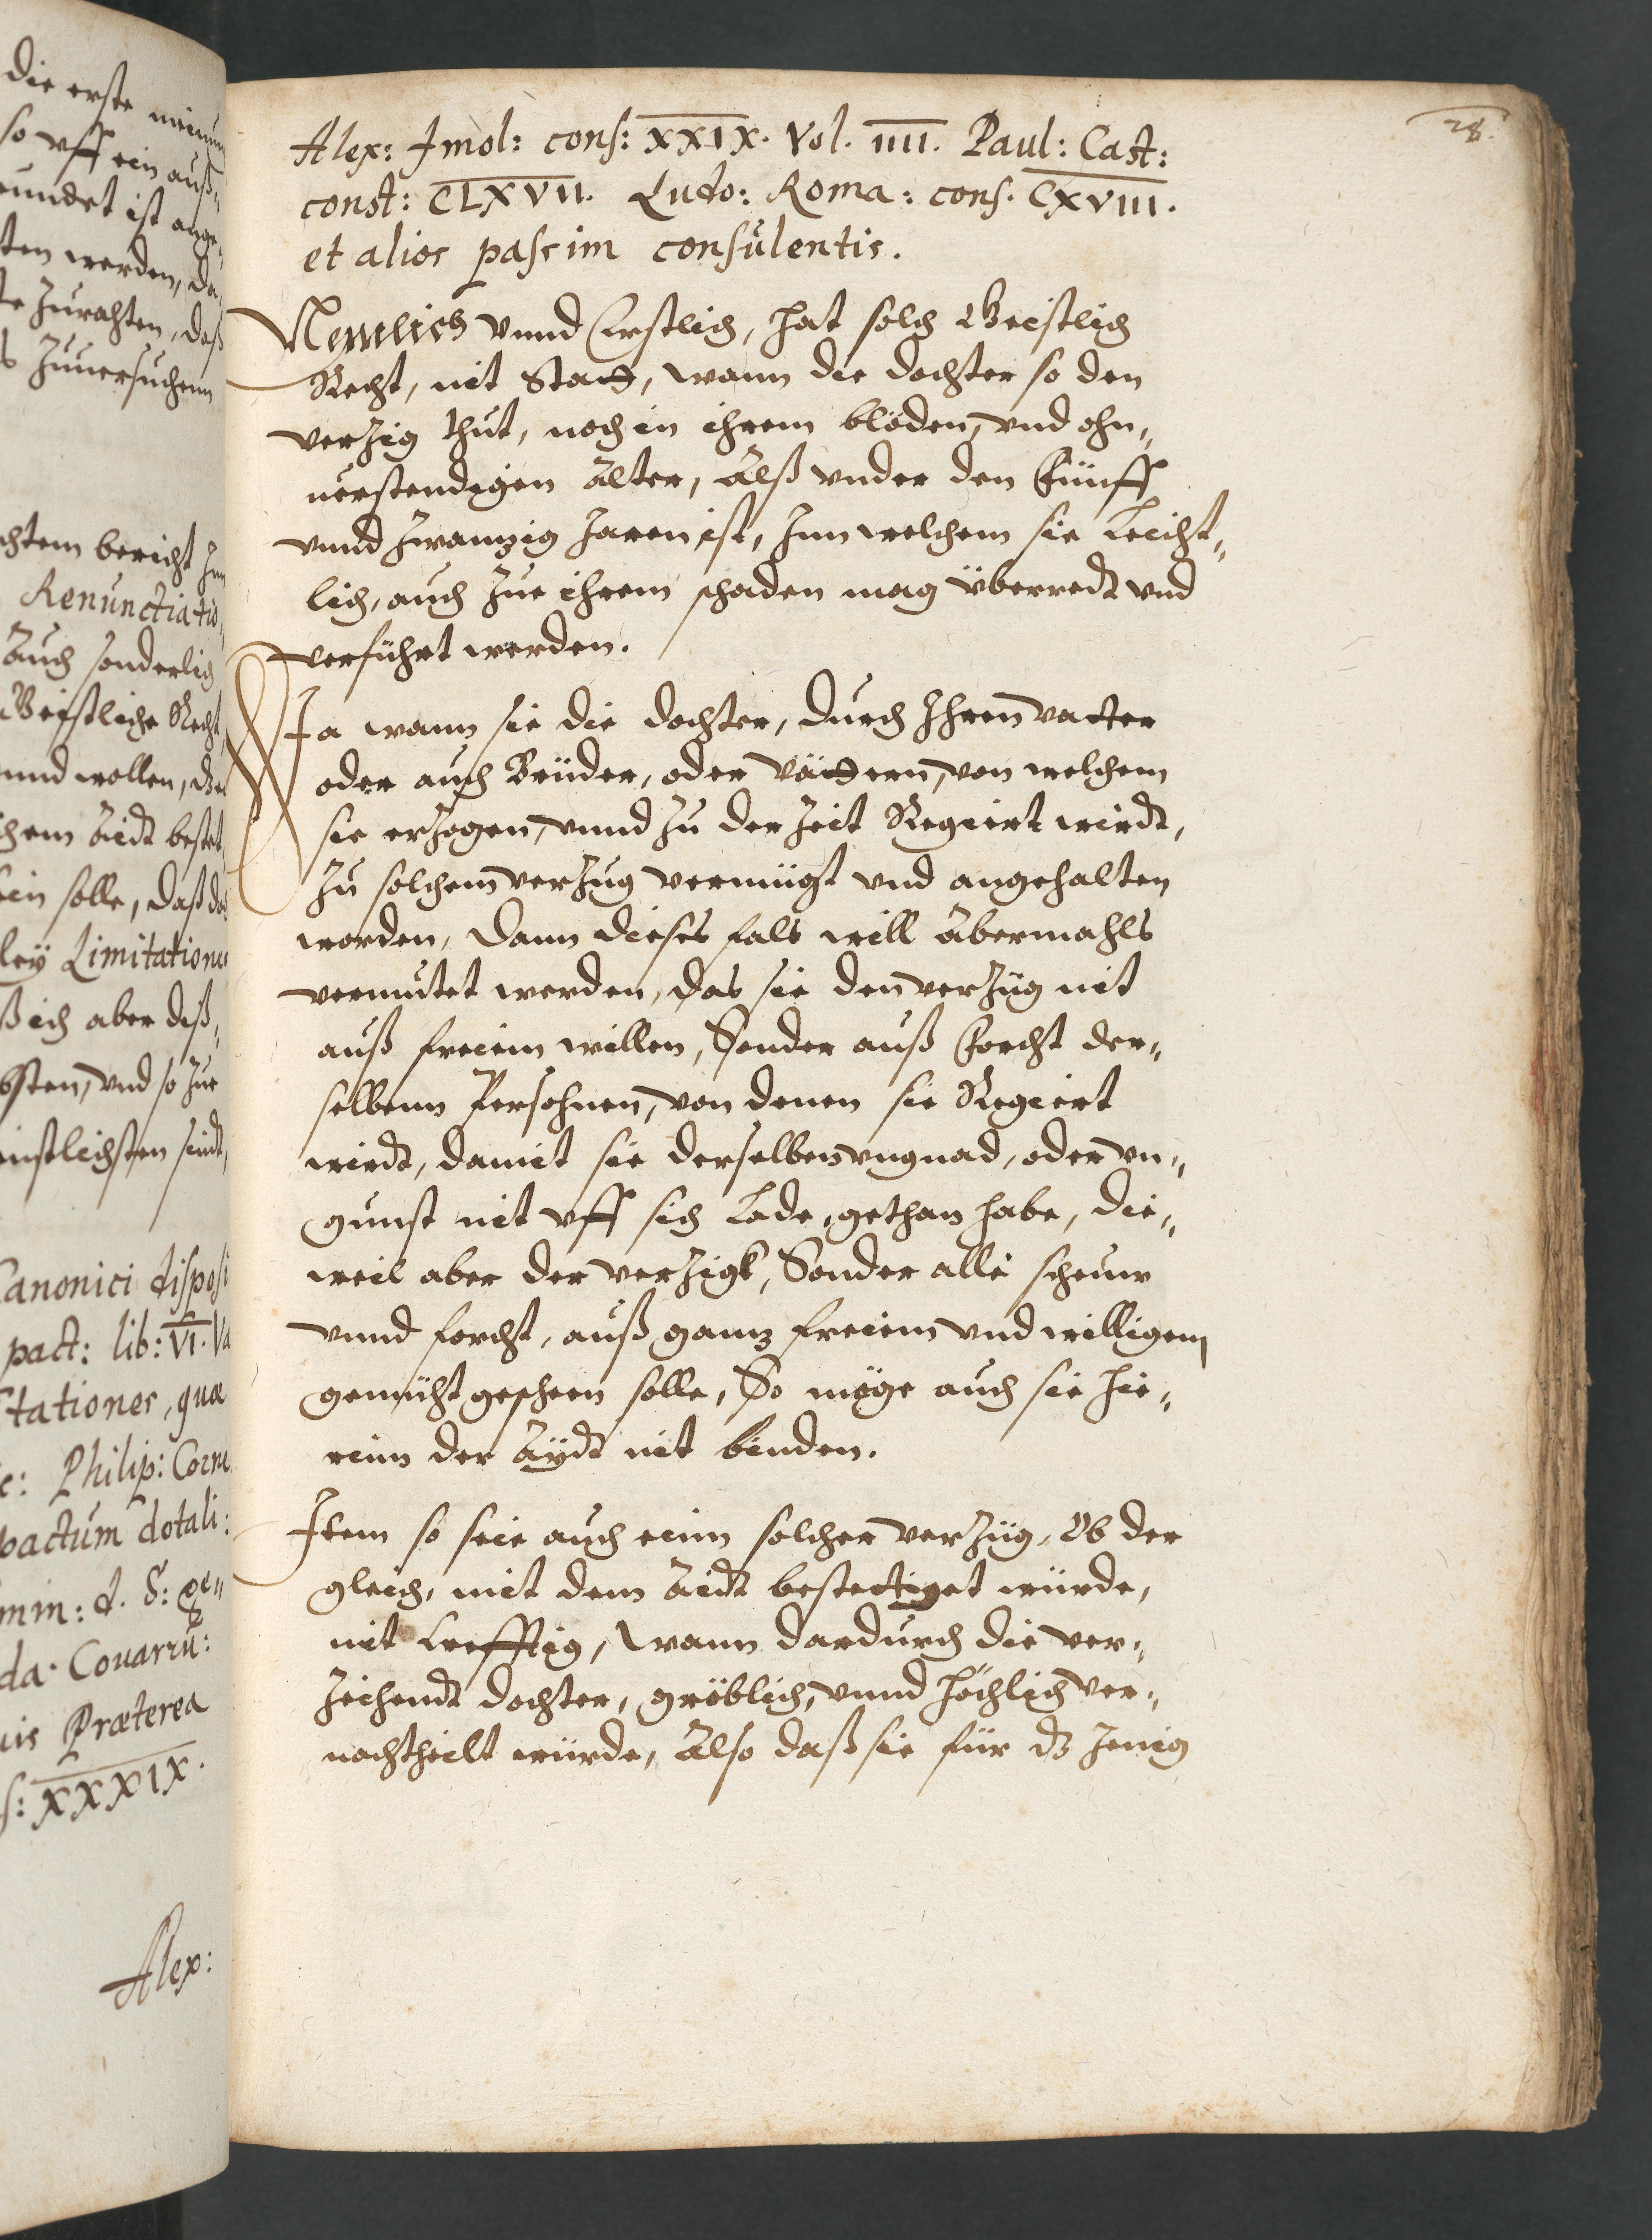 die erste meinun
so vff ein auß„
undet ist ange„
ten werden, da
te Zurahten, daß
s Zuuersuchenn
chtem bericht Jn
Renunctiatio„
Auch sonderlich
Geistliche Recht
unnd wollen, d
chem Aidt bestet
ein solle, daß das
ley Limitatione
ß ich aber diß„
bsten, vnd so Zue
nstlichsten sindt,
Canonici disposi
pact: lib: VI. Va
tationes, quæ
c: Philip: Corne
pactum dotali:
min: d. §: ge„
da. Couarru:
uis Præterea
s: XXXIX.
Alex:
28.
Alex: Jmol: cons: XXIX. Vol. IIII. Paul: Cast:
const: CLXVII. Ludo: Roma: cons. CXVIII.
et alios passim consulentis.
Nemlich vnnd Erstlich, hat solch Geistlich
Recht, nit Statt, wann die dochter so den
verZig thut, noch in ihrem blöden, vnd ohn„
uerstendigen Alter, Alß vnder den Fünff
vnnd Zwanzig Jaren ist, Jnn welchem sie Leicht„
lich, auch Zue ihrem schaden mag überredt vnd
verführt werden.
Ja wann sie die dochter, durch Jhren vatter
oder auch Brüder, oder Vättern, von welchem
sie erZogen, vnnd Zu der Zeit Regiert wirdt,
Zu solchem verZug vermügt vnd angehalten
worden, dann dieses fals will Abermahls
vermutet werden, das sie den verZüg nit
auß freiem willen, Sonder auß Forcht der„
selbenn Persohnen, von denen sie Regiert
wirdt, damit sie derselben vngnad, oder vn„
gunst nit vff sich Lade, gethan habe, die„
weil aber der verZigk, Sonder alle scheuw
vnnd forcht, auß ganz freiem vnd willigem
gemüht gescheen solle, So möge auch sie hie„
rinn der Aydt nit binden.
Jtem so seie auch einn solcher verZüg, Ob der
gleich, mit dem Aidt bestettiget würde,
nit krefftig, Wann dardurch die ver„
Zeihendt dochter, gröblich, vnnd höchlich ver„
nachtheilt würde, Also daß sie für dz Jenig